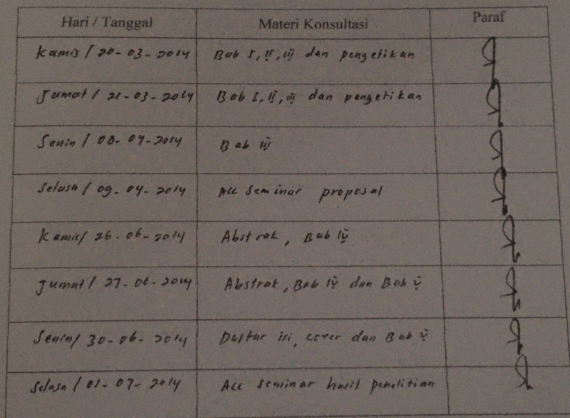 Hari / Tanggal Materi Konsultasi Paraf
Kamis / 20-03-2014 Bab I, II, III dan pengetikan
Jumat / 21-03-2014 Bab I, II, III dan pengetikan
Senin / 08-04-2014 Bab III
Selasa / 09-04-2014 Acc Seminar proposal
Kamis / 26-06-2014 Abstrak, Bab IV
Jumat / 27-06-2014 Abstrak, Bab IV dan Bab V
Senin / 30-06-2014 Daftar isi, cover dan Bab V
Selasa / 01-07-2014 Acc seminar hasil penelitian